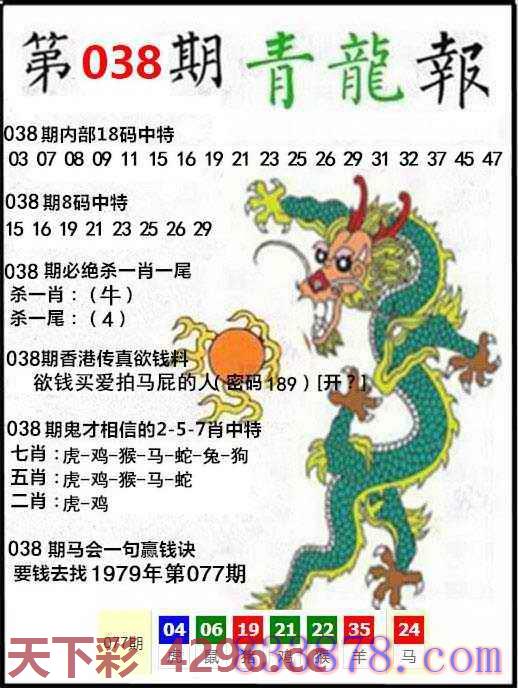 第038期青龍報
038期内部18码中特
03 07 08 09 11 15 16 19 21 23 25 26 29 31 32 37 45 47
038期8码中特
15 16 19 21 23 25 26 29
038期必绝杀一肖一尾
杀一肖：（牛）
杀一尾：（4）
038期香港传真欲钱料
欲钱买爱拍马屁的人(密码189)[开？]
038期鬼才相信的2-5-7肖中特
七肖：虎-鸡-猴-马-蛇-兔-狗
五肖：虎-鸡-猴-马-蛇
二肖：虎-鸡
038期马会一句赢钱诀
要钱去找1979年第077期
077期 04 06 19 21 22 35 24
虎 鼠 猪 鸡 猴 羊 马
天下彩 4296.cc